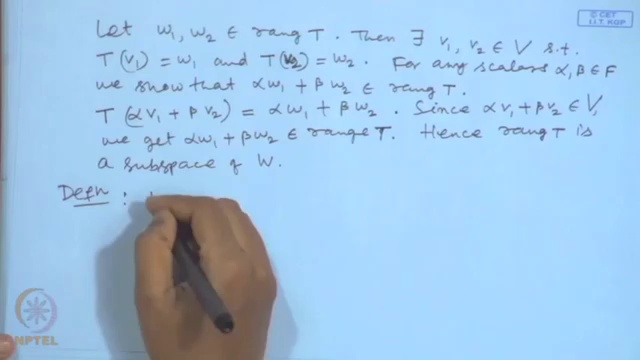 © CET
I.I.T. KGP
Let w1, w2 ∈ rang T. Then ∃ v1, v2 ∈ V s.t.
T(v1) = w1 and T(v2) = w2. For any scalars α, β ∈ F
we show that αw1 + βw2 ∈ rang T.
T(αv1 + βv2) = αw1 + βw2. Since αv1 + βv2 ∈ V,
we get αw1 + βw2 ∈ range T. Hence rang T is
a subspace of W.
Defn :
NPTEL